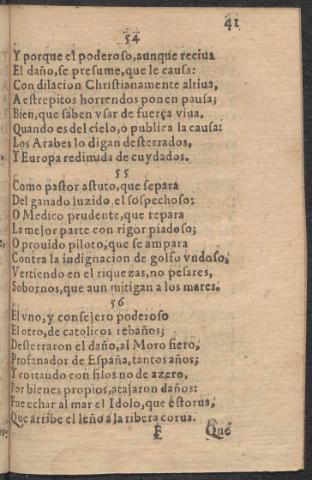 41
54
Y porque el poderoso, aunque reciua
El daño, se presume, que le causa:
Con dilacion Christianamente altiua,
A estrepitos horrendos ponen pausa;
Bien, que saben vsar de fuerça viua,
Quando es del cielo, o publica la causa:
Los Arabes lo digan desterrados,
Y Europa redimida de cuydados.
55
Como pastor astuto, que separa
Del ganado luzido, el sospechoso:
O Medico prudente, que repara
La mejor parte con rigor piadoso;
O prouido piloto, que se ampara
Contra la indignacion de golfo vndoso,
Vertiendo en el riquezas, no pesares,
Sobornos, que aun mitigan a los mares.
56
El vno, y consejero poderoso
El otro, de catolicos rebaños;
Desterraron el daño, al Moro fiero,
Profanador de España, tantos años;
Y cortando con filos no de azero,
Por bienes propios, atajaron daños:
Fue echar al mar el Idolo, que estorua,
Que arribe el leño a la ribera corua.
F Que